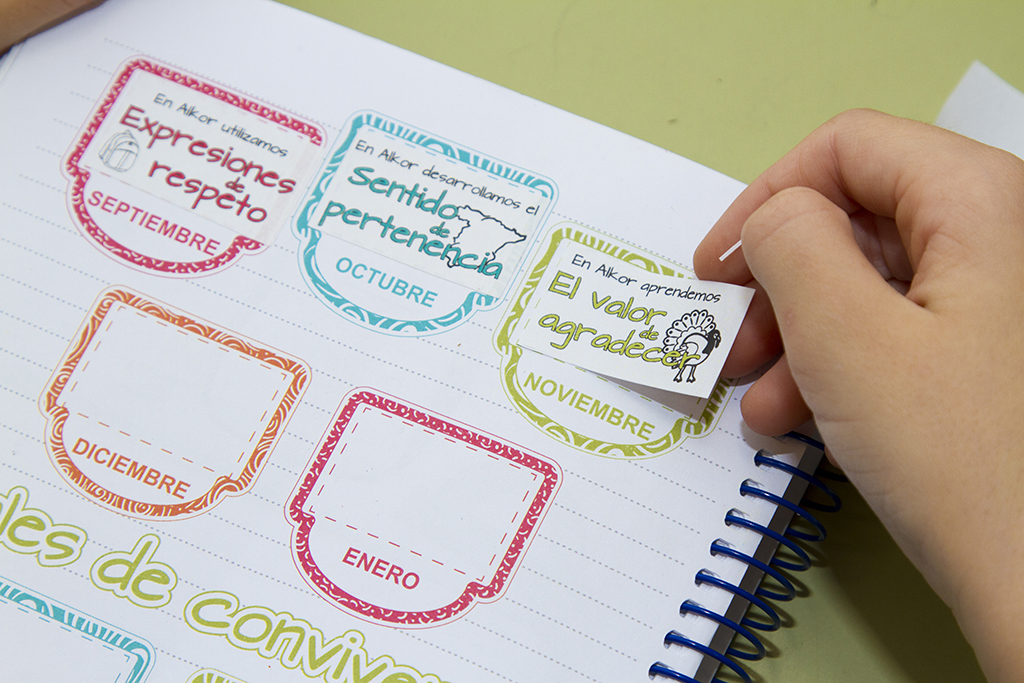 En Alkor utilizamos
Expresiones
de
respeto
SEPTIEMBRE
En Alkor desarrollamos el
Sentido
de
pertenencia
OCTUBRE
En Alkor aprendemos
El valor
de
agradecer
NOVIEMBRE
DICIEMBRE
ENERO
de